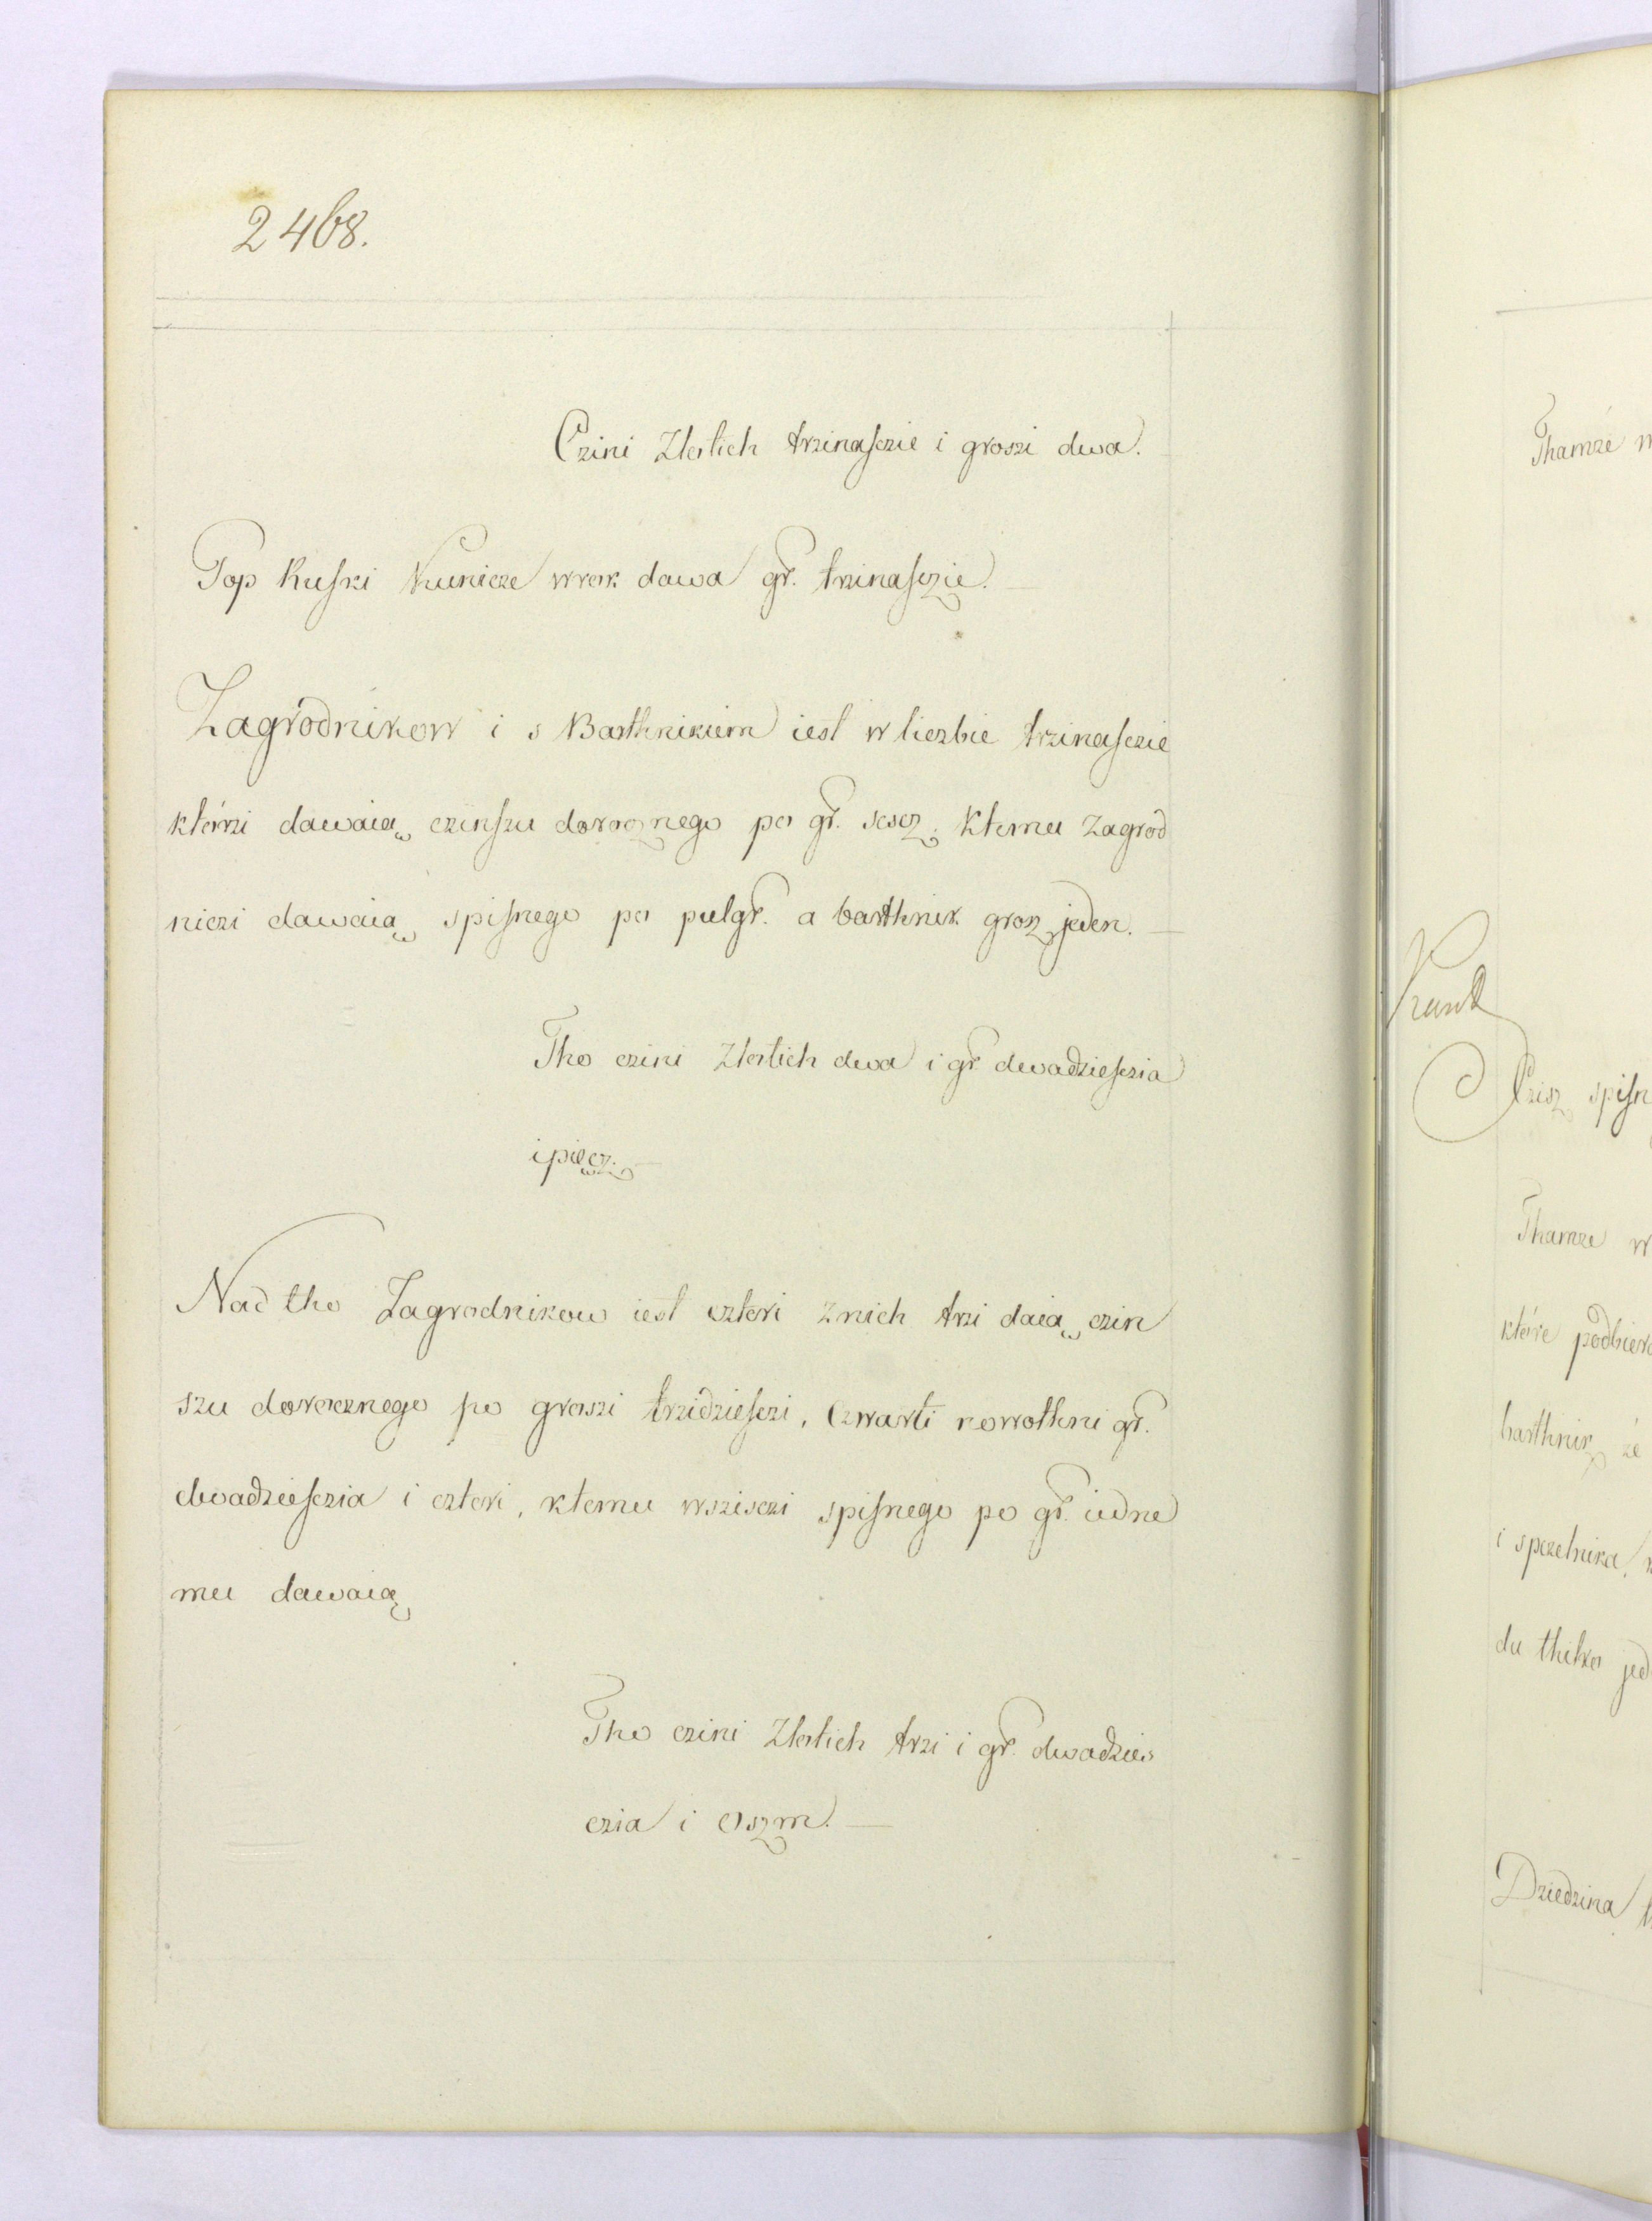 2468.
Czini Złotich trzinaſczie i groszi dwa.
Pop Ruſki Kunicze wrok dawa gr. trzinaſczie.
Zagrodnikow i s Barthnikiem iest w liczbie trzinaſczie
którzi dawaią czinſzu dorocznego po gr. sescz. Ktemu Zagrod
niczi dawaią spiſnego po pulgr. a barthnik grosz jeden.
Tho czini Złotich dwa i gr. dwadzieſczia
i pięcz.
Nad tho Zagrodnikow iest czteri z nich trzi daią czin
szu dorocznego po groszi trzidzieſczi, Czwarti nowothni gr.
dwadzieſczia i czteri, ktemu wszisczi spiſnego po gr. iedne
mu dawaią
Tho czini Złotich trzi i gr. dwadzies
czia i Oszm.
Thamże
Czisz spiſn
Thamze w
które podbier
barthnik że
i spczelnika,
du thilko jed
Dziedzina